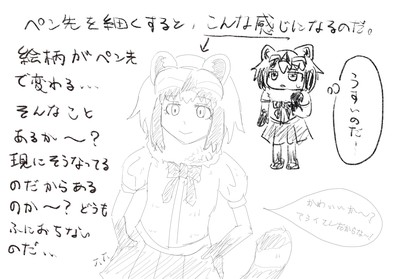 ペン先を細くすると、こんな感じになるのだ。
絵柄がペン先
で変わる...
そんなこと
あるか〜?
現にそうなってる
のだからある
のか〜?どうも
ふにおちない
のだ...
うすいのだー
かわいいか〜?